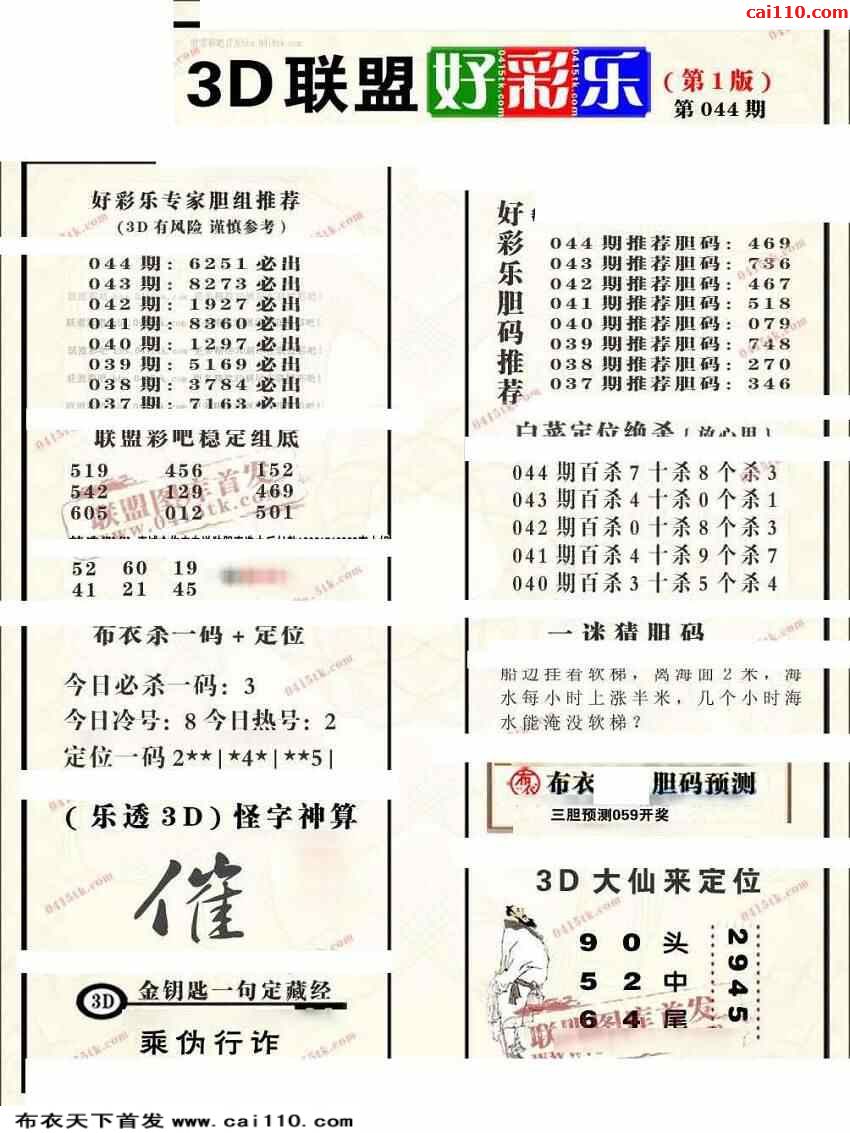 cai110.com
3D联盟好彩乐
(第1版)
第044期
好彩乐专家胆组推荐
(3D有风险 谨慎参考)
044期: 6251必出
043期: 8273必出
042期: 1927必出
041期: 8360必出
040期: 1297必出
039期: 5169必出
038期: 3784必出
037期: 7163必出
联盟彩吧稳定组底
519 456 152
542 129 469
605 012 501
52 60 19
41 21 45
布衣杀一码+定位
今日必杀一码: 3
今日冷号: 8 今日热号: 2
定位一码2**|*4*|**5|
(乐透3D)怪字神算
催
3D 金钥匙一句定藏经
乘伪行诈
好彩乐胆码推荐
044期推荐胆码: 469
043期推荐胆码: 736
042期推荐胆码: 467
041期推荐胆码: 518
040期推荐胆码: 079
039期推荐胆码: 748
038期推荐胆码: 270
037期推荐胆码: 346
白菜定位绝杀(放心用)
044期百杀7十杀8个杀3
043期百杀4十杀0个杀1
042期百杀0十杀8个杀3
041期百杀4十杀9个杀7
040期百杀3十杀5个杀4
一迷猜胆码
船边挂着软梯,离海面2米,海
水每小时上涨半米,几个小时海
水能淹没软梯?
布衣 胆码预测
三胆预测059开奖
3D大仙来定位
9 0 头
5 2 中
6 4 尾
2945
联盟图库首发
www.0415tk.com
布衣天下首发 www.cai110.com